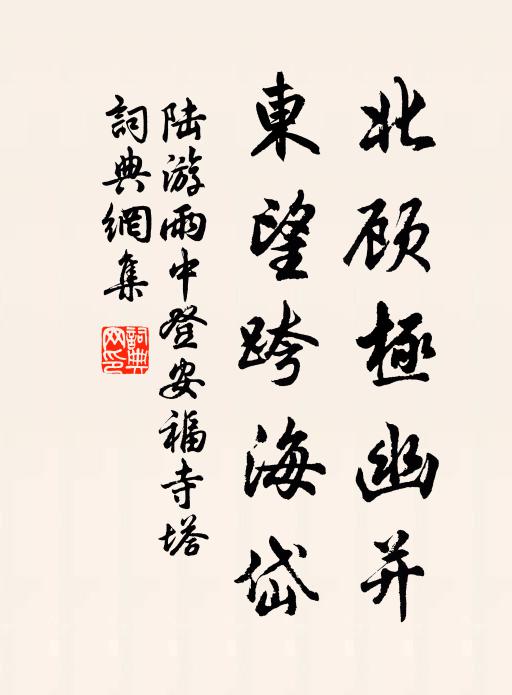 北顾極幽并
東望跨海岱
陆游雨中登安福寺塔
詞典網集
詞典網印